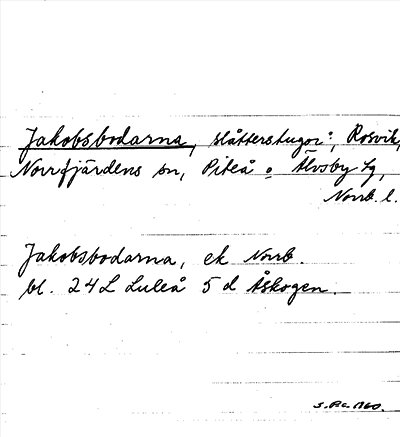 Jakobsbodarna, slåtterstugor, Rosvik,
Norrfjärdens sn, Piteå o Älvsby tg,
Norrb. l.
Jakobsbodarna, ek Norrb.
bl. 24L Luleå 5 d Åskogen.